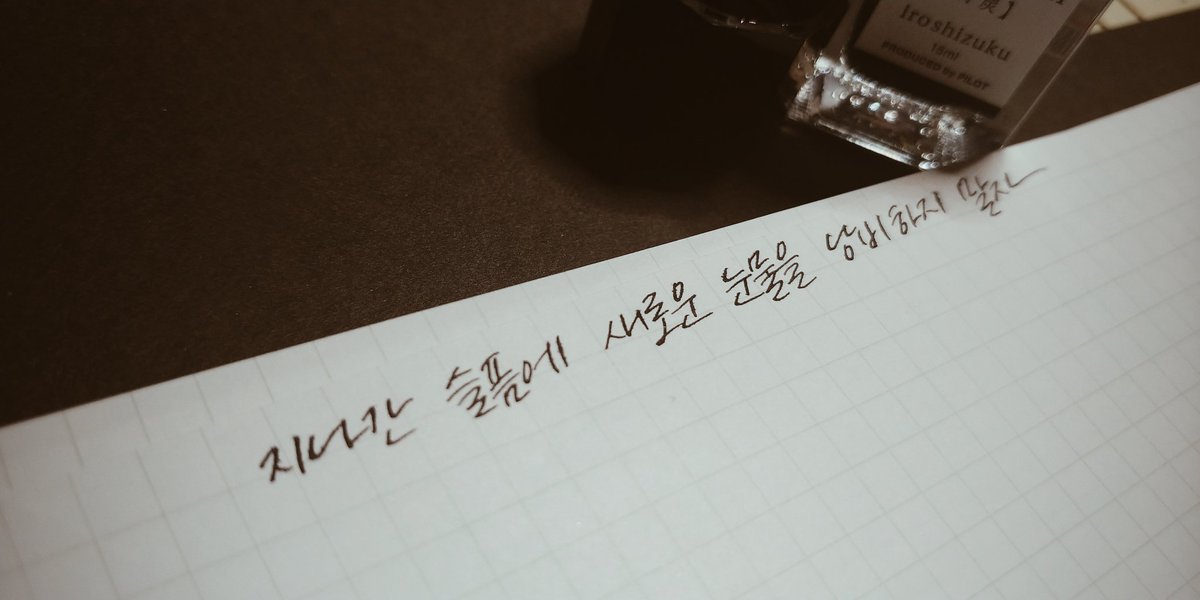 iroshizuku
15ml
PRODUCED by PILOT
지나간 슬픔에 새로운 눈물을 낭비하지 말자